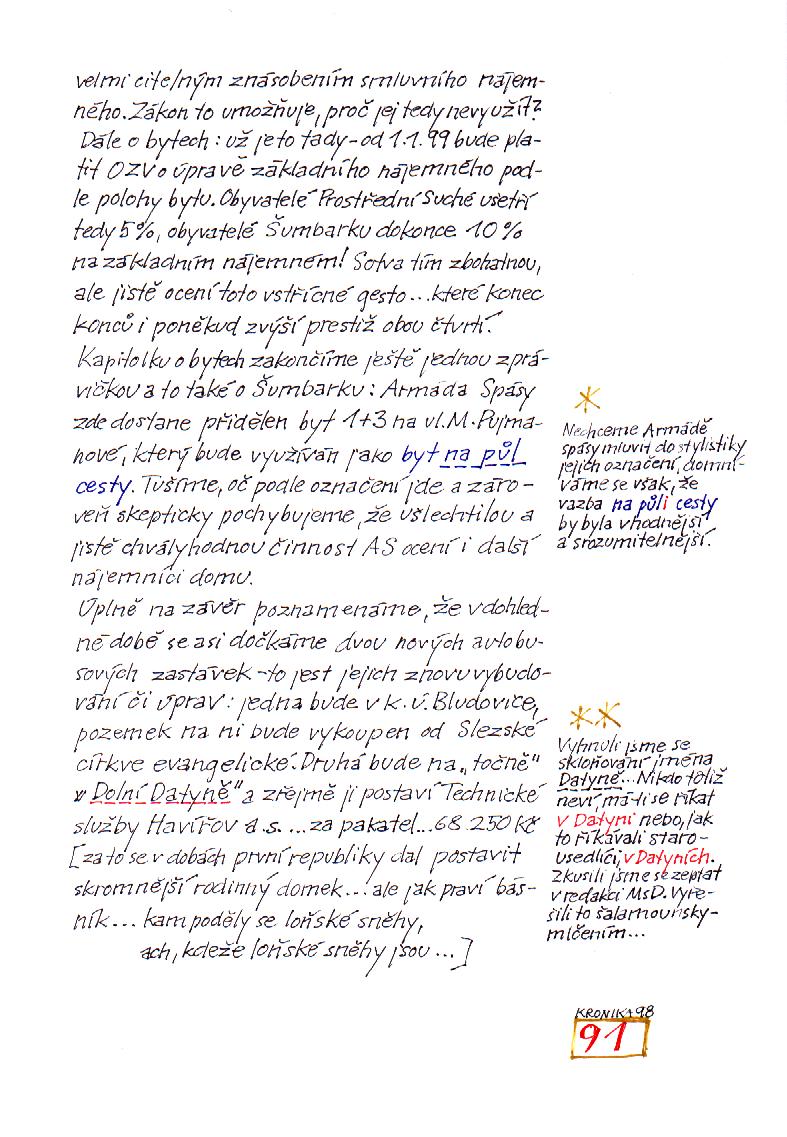 velmi citelným znásobením smluvního nájem-
ného. Zákon to umožňuje, proč jej tedy nevyužít?
Dále o bytech: už je to tady - od 1.1.99 bude pla-
tit OZV o úpravě základního nájemného pod-
le polohy bytu. Obyvatelé Prostřední Suché ušetří
tedy 5%, obyvatelé Šumbarku dokonce 10%
na základním nájemném! Sotva tím zbohatnou,
ale jistě ocení toto vstřícné gesto... které konec
konců i poněkud zvýší prestiž obou čtvrtí.
Kapitolku o bytech zakončíme ještě jednou zprá-
vičkou a to také o Šumbarku: Armáda Spásy
zde dostane přidělen byt 1+3 na ul. M. Pujma-
nové, který bude využíván jako byt na půl
cesty. Tušíme, oč podle označení jde a záro-
veň skepticky pochybujeme, že ušlechtilou a
jistě chvályhodnou činnost AS ocení i další
nájemníci domu.
Úplně na závěr poznamenáme, že v dohled-
né době se asi dočkáme dvou nových autobu-
sových zastávek - to jest jejich znovuvybudo-
vání či úprav: jedna bude v k. ú. Bludovice,
pozemek na ni bude vykoupen od Slezské
církve evangelické. Druhá bude na „točně"
v Dolní Datyně" a zřejmě ji postaví Technické
služby Havířov a.s. ... za pakatel... 68.250 Kč
[za to se v dobách první republiky dal postavit
skromnější rodinný domek... ale jak praví bás-
ník... kam poděly se loňské sněhy,
ach, kdeže loňské sněhy jsou...]
*
Nechceme Armádě
spásy mluvit do stylistiky
jejich označení, domní-
váme se však, že
vazba na půli cesty
by byla vhodnější
a srozumitelnější.
**
Vyhnuli jsme se
skloňování jména
Datyně... Nikdo totiž
neví, má-li se říkat
v Datyni nebo, jak
to říkávali staro-
usedlíci, v Datyních.
Zkusili jsme se zeptat
v redakci MsD. Vyře-
šili to šalamounsky -
mlčením...
KRONIKA 98
91